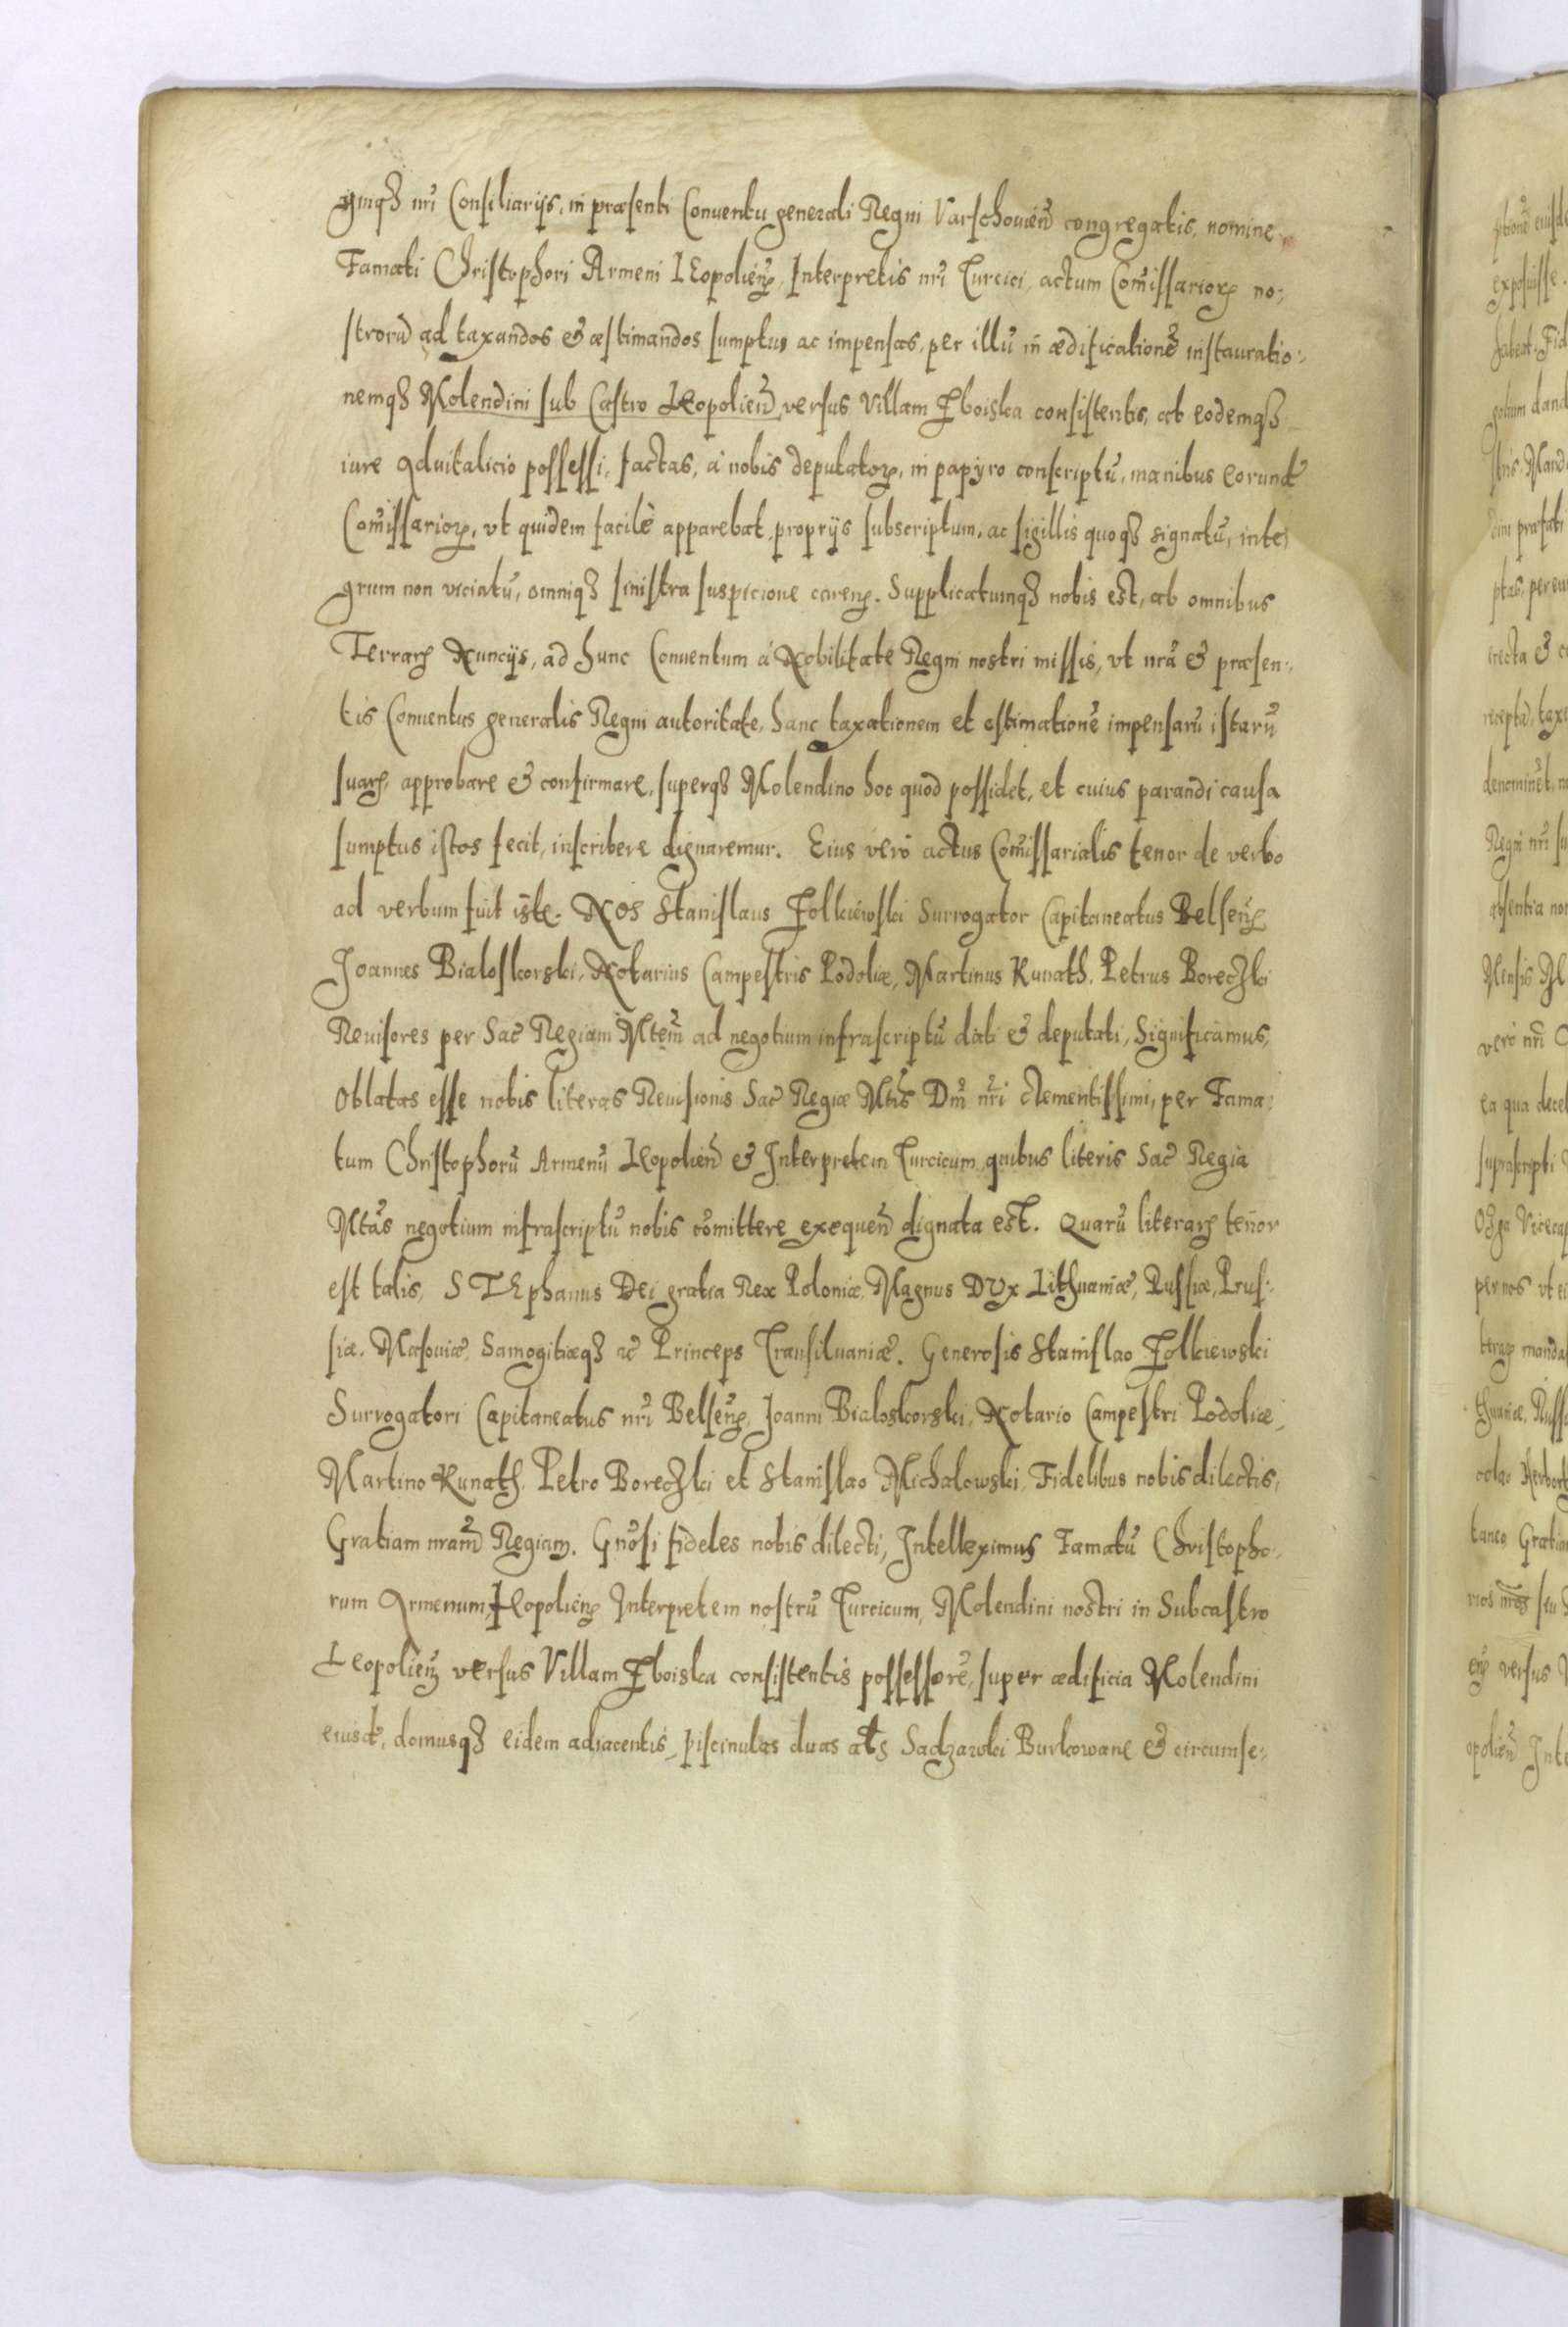 ymq₃ nr̃i Consiliarijs, in præsenti Conuentu generali Regni Varschouieñ congregatis, nomine
Famati Christophori Armeni LEopolieñ, Interpretis nr̃i Turcici, actum Com̃issarior̨ no:
strorũ ad taxandos & æstimandos sumptus ac impensas, per illũ in ædificationẽ instauratio:
nemq₃ Molendini sub Castro Leopolieñ versus Villam Zboiska consistentis, ab eodemq₃
iure aduitalicio possessi, factas, á nobis deputator̨, in papyro conscriptũ, manibus eorund̃
Com̃issarior̨, vt quidem facilè apparebat, proprijs subscriptum, ac sigillis quoq₃ signatũ, inte
grum non viciatũ, omniq₃ sinistra suspicione careñ. Supplicatumq₃ nobis est, ab omnibus
Terrar̨ Nuncijs, ad hunc Conuentum á Nobilitate Regni nostri missis, vt nr̃a & præsen:
tis Conuentus generalis Regni autoritate, hanc taxationem et estimationẽ impensarũ istarũ
suar̨, approbare & confirmare, superq₃ Molendino hoc quod possidet, et cuius parandi causa
sumptus istos fecit, inscribere dignaremur. Eius verò actus Com̃issarialis tenor de verbo
ad verbum fuit iste. Nos Stanislaus Zolkiéwski Surrogator Capitaneatus Belseñ
Joannes Bialoskorski, Notarius Campestris Podoliæ, Martinus Kunath, Petrus Boreczki
Reuisores per Sac̃ Regiam Mtem̃ ad negotium infrascriptũ dati & deputati, Significamus,
Oblatas esse nobis literas Reuisionis Sac̃ Regiæ Mtis̃ Dñi nr̃i clementissimi, per Fama:
tum Christophorũ Armenũ Leopolieñ & Interpretem Turcicum, quibus literis Sac̃ Regia
Mtas̃ negotium infrascriptũ nobis com̃ittere exequeñ dignata est. Quarũ literar̨ tenor
est talis, STEphanus Dei gratia Rex Poloniæ, Magnus DVx Lithuaniæ, Russiæ, Prus:
siæ, Masouiæ, Samogitiæq₃ &c Princeps Transiluaniæ. Generosis Stanislao Zolkiewski
Surrogatori Capitaneatus nr̃i Belseñ, Joanni Bialoskorski, Notario Campestri Podoliæ,
Martino Kunath, Petro Boreczki et Stanislao Michalowski, Fidelibus nobis dilectis,
Gratiam nr̃am Regiam. Gnõsi fideles nobis dilecti, Intelleximus Famatũ Christopho
rum Armenum Leopolieñ Interpretem nostrũ Turcicum, Molendini nostri in Subcastro
Leopolieñ versus Villam Zboiska consistentis possessorẽ, super ædificia Molendini
eiusd̃, domusq₃ eidem adiacentis, piscinulas duas als̃ Sadzawki Burkowane & circumse: